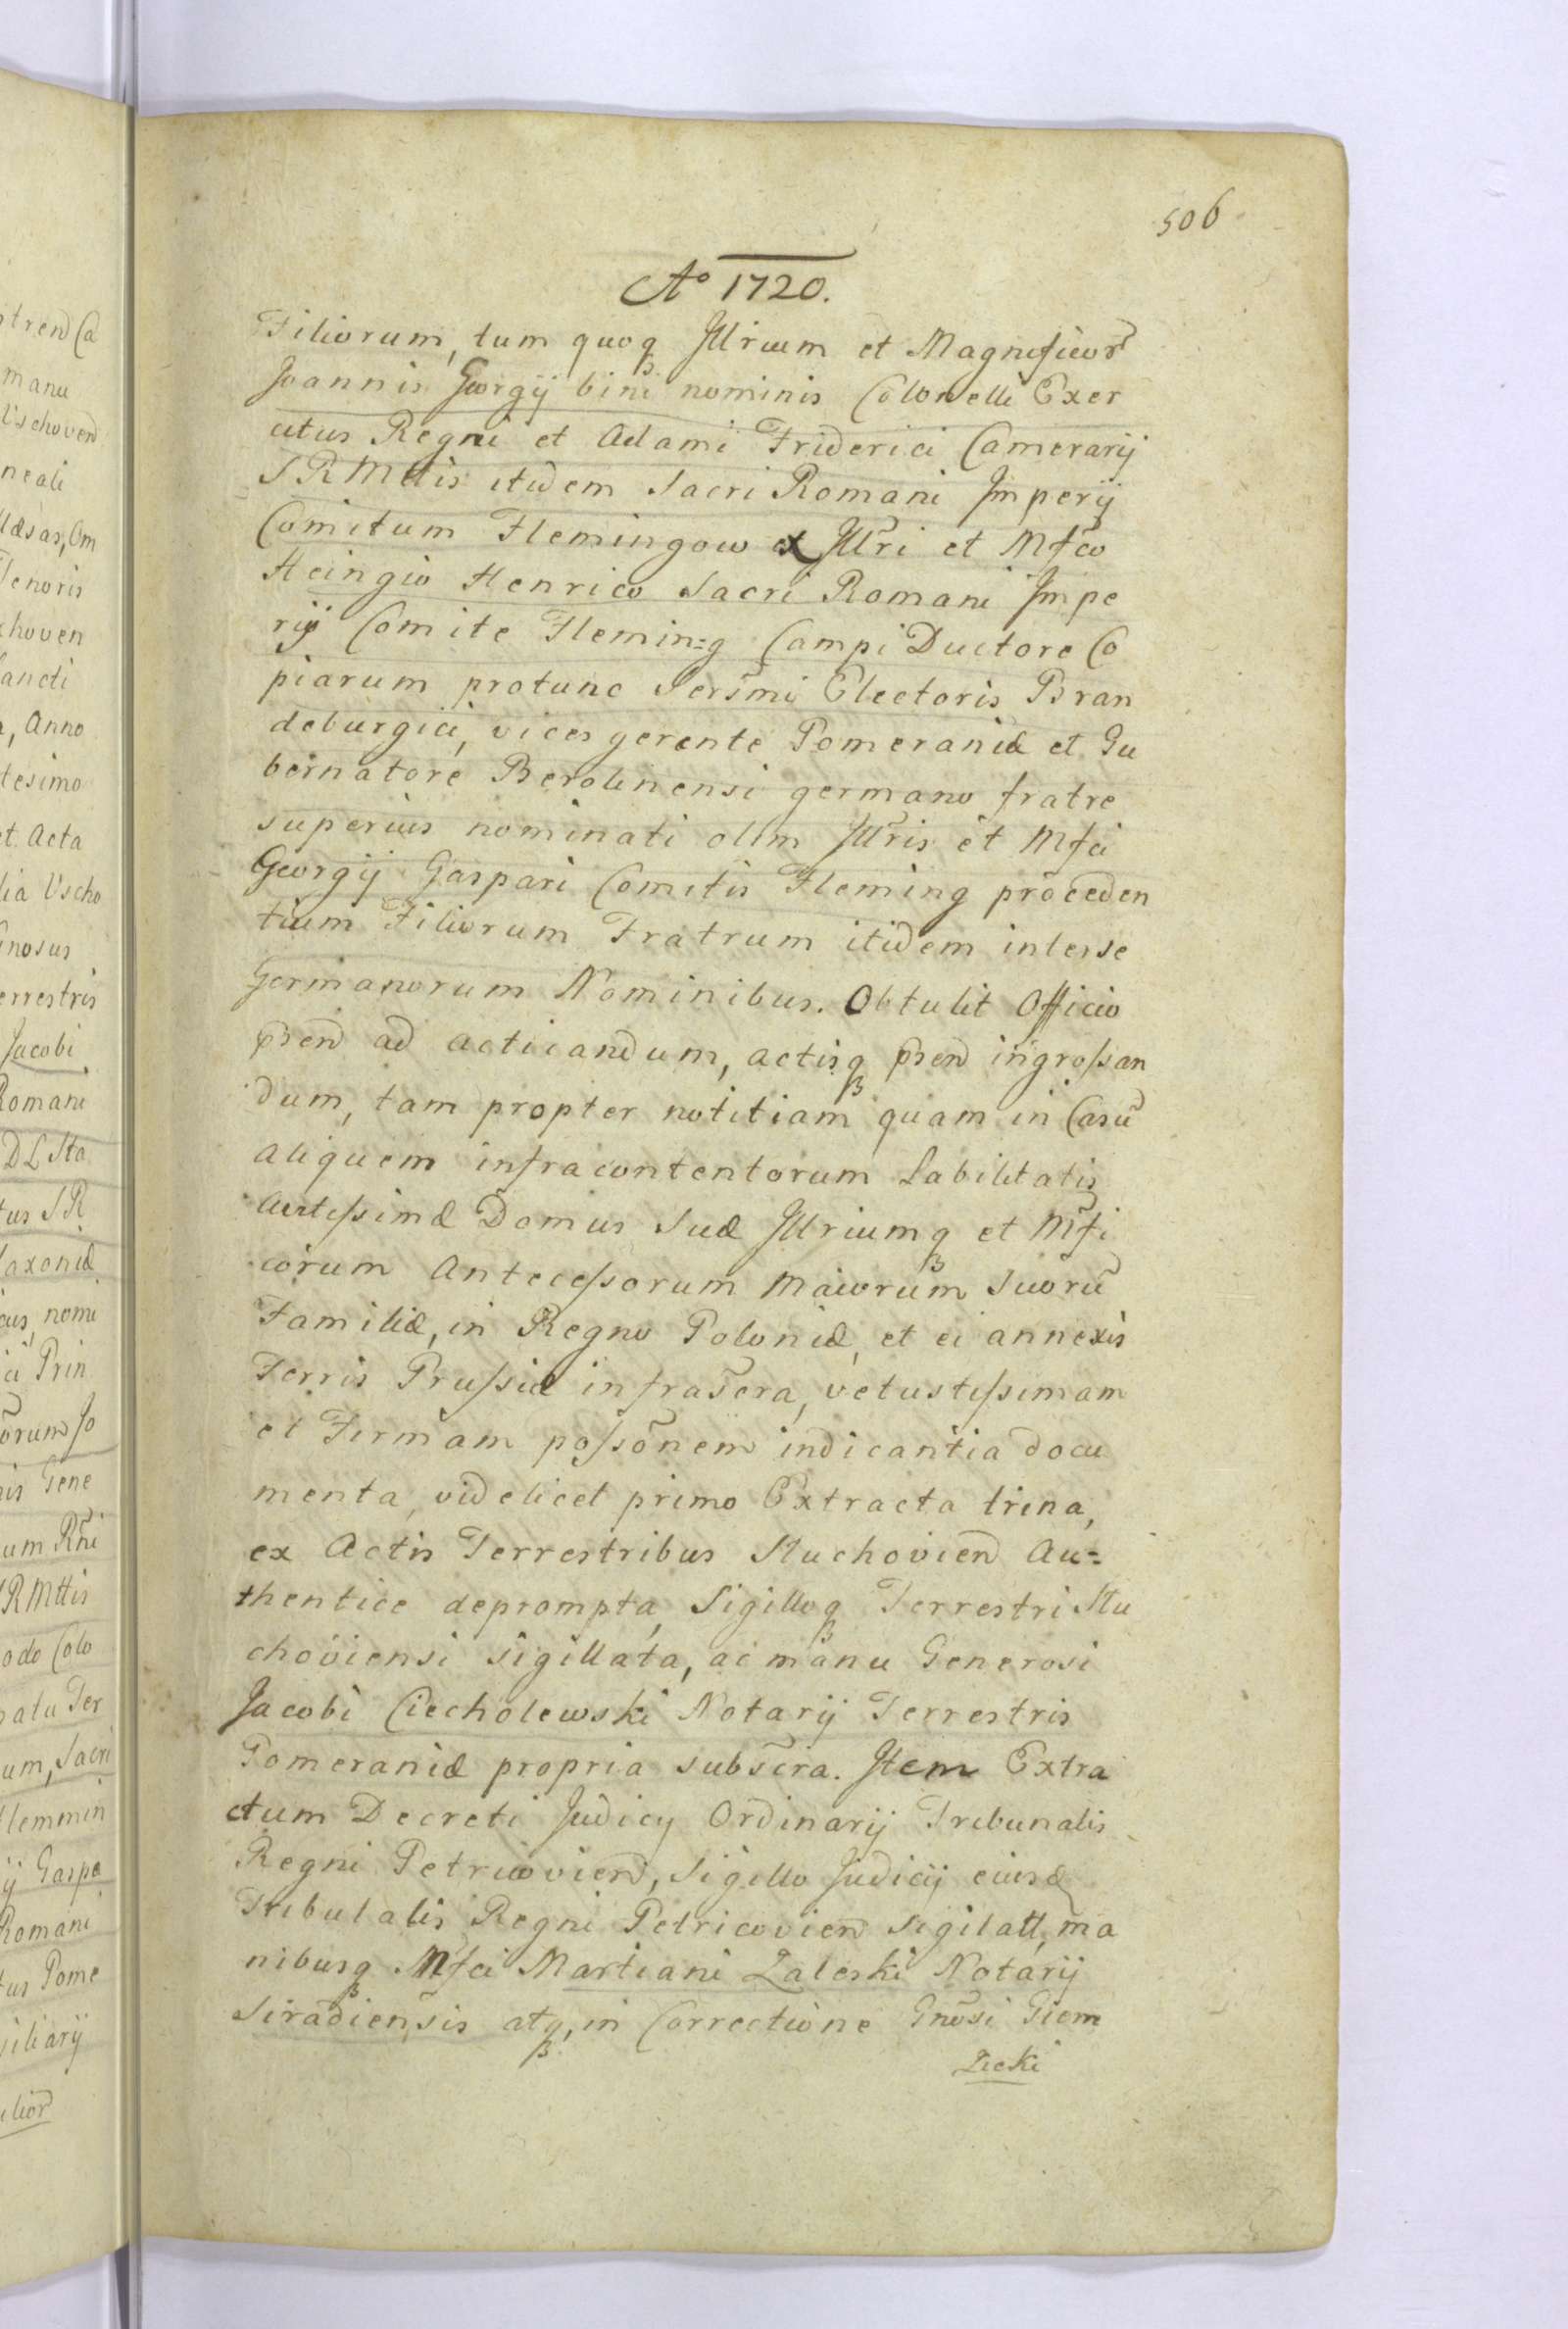 506
Ao 1720.
Filiorum, tum quoq Jllrium et Magnificor
Joannis Georgij bini nominis Colonelli Exer
citus Regni et Adami Friderici Camerarij
SRMttis itidem Sacri Romani Jmperij
Comitum Flemingow ex Jllri et Mfco
Heingio Henrico Sacri Romani Jmpe
rij Comite Flemin=g Campi Ductore Co
piarum protunc Sersmi Electoris Bran
deburgici, vices gerente Pomeraniæ et Gu
bernatore Berolinensi germano fratre
superius nominati olim Jllris et Mfci
Georgij Gaspari Comitis Fleming proceden
tium Filiorum Fratrum itidem interse
Germanorum Nominibus. Obtulit Officio
psen ad acticandum, actisq psen ingrossan
dum, tam propter notitiam quam in Casu
aliquem infracontentorum Labilitatis
Avitissimæ Domus Suæ Jllriumq et Mfi
corum Antecessorum Maiorum Suoru
Familiæ, in Regno Poloniæ, et ei annexis
Terris Prussiæ infrascra, vetustissimam
et Firmam possonem indicantia docu
menta, videlicet primo Extracta trina,
ex Actis Terrestribus Sluchovien Au=
thentice deprompta, Sigilloq Terrestri Slu
choviensi sigillata, ac manu Generosi
Jacobi Ciecholewski Notarij Terrestris
Pomeraniæ propria subscra. Jtem Extra
ctum Decreti Judicy Ordinarij Tribunalis
Regni Petricovien, Sigillo Judicij eiusd
Tribulalis Regni Petricovien Sigilatt, ma
nibusq Mfci Martiani Zaleski Notarij
Siradiensis atq, in Correctione Gnosi Giem
Zicki